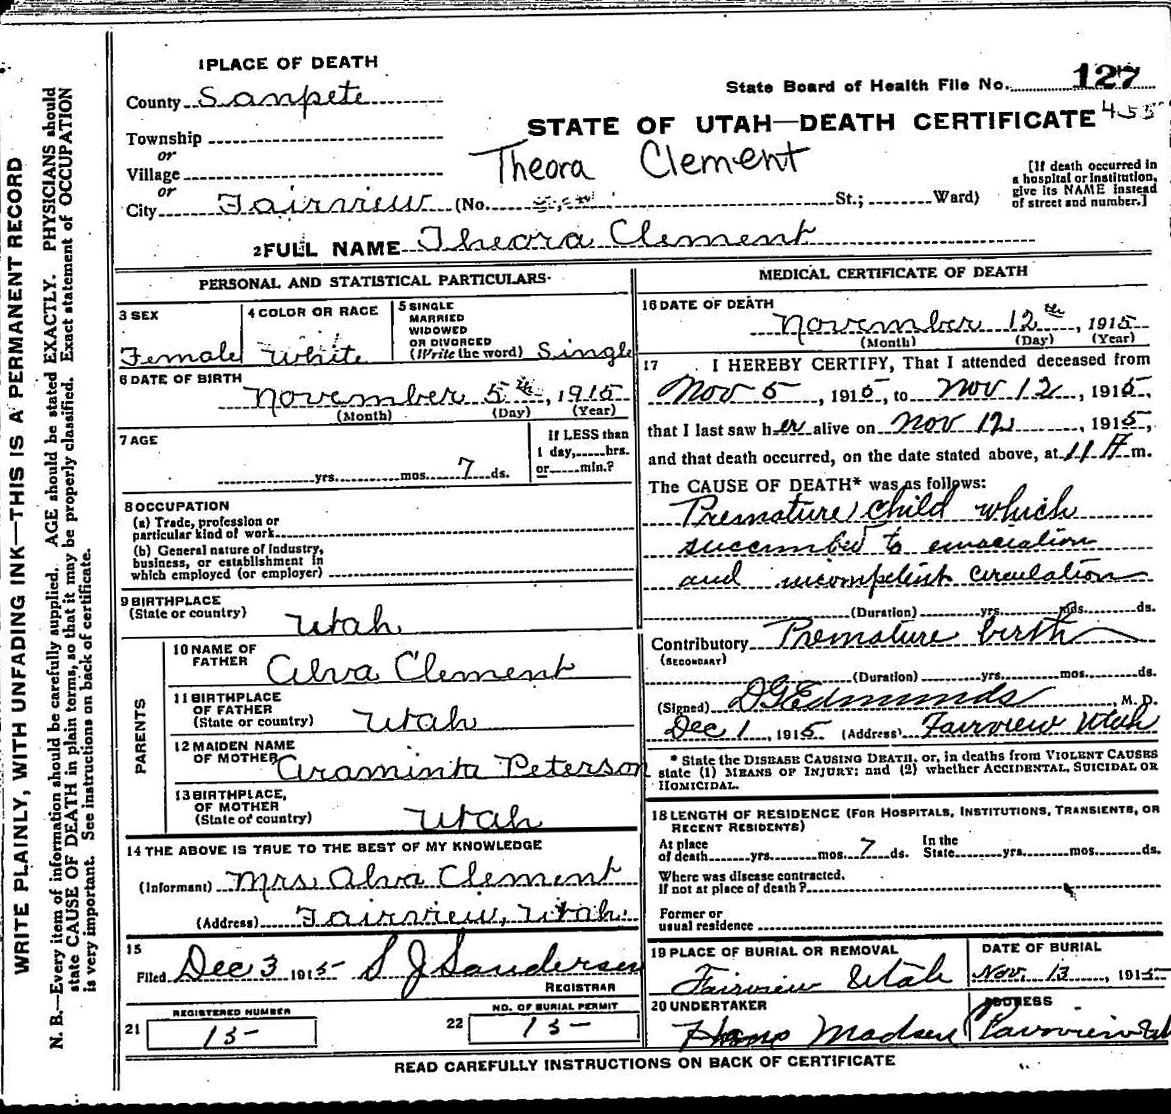 1 PLACE OF DEATH
State Board of Health File No. 127
County Sanpete
455
STATE OF UTAH—DEATH CERTIFICATE
Township
or
Village
Theora Clement
or
City Fairview (No. St.; Ward)
[If death occurred in
a hospital or institution,
give its NAME instead
of street and number.]
2 FULL NAME Theora Clement
PERSONAL AND STATISTICAL PARTICULARS
3 SEX
Female
4 COLOR OR RACE
White
5 SINGLE
MARRIED
WIDOWED
OR DIVORCED
(Write the word) Single
6 DATE OF BIRTH
November 5th, 1915
(Month) (Day) (Year)
7 AGE
yrs. mos. 7 ds.
If LESS than
1 day, hrs.
or min.?
8 OCCUPATION
(a) Trade, profession or
particular kind of work
(b) General nature of industry,
business, or establishment in
which employed (or employer)
9 BIRTHPLACE
(State or country) Utah
PARENTS
10 NAME OF
FATHER Alva Clement
11 BIRTHPLACE
OF FATHER
(State or country) Utah
12 MAIDEN NAME
OF MOTHER Araminta Peterson
13 BIRTHPLACE,
OF MOTHER
(State or country) Utah
14 THE ABOVE IS TRUE TO THE BEST OF MY KNOWLEDGE
(Informant) Mrs Alva Clement
(Address) Fairview, Utah.
15
Filed Dec 3 1915 S J Sandersen
REGISTRAR
21 REGISTERED NUMBER
15
22 NO. OF BURIAL PERMIT
15
MEDICAL CERTIFICATE OF DEATH
16 DATE OF DEATH
November 12th, 1915
(Month) (Day) (Year)
17 I HEREBY CERTIFY, That I attended deceased from
Nov 5, 1915, to Nov 12, 1915,
that I last saw her alive on Nov 12, 1915,
and that death occurred, on the date stated above, at 11 A m.
The CAUSE OF DEATH* was as follows:
Premature child which
succumbed to emaciation
and incompetent circulation
(Duration) yrs. mos. ds.
Contributory Premature birth
(SECONDARY)
(Duration) yrs. mos. ds.
(Signed) D G Edmunds M. D.
Dec 1, 1915 (Address) Fairview Utah
* State the DISEASE CAUSING DEATH, or, in deaths from VIOLENT CAUSES
state (1) MEANS OF INJURY; and (2) whether ACCIDENTAL, SUICIDAL OR
HOMICIDAL.
18 LENGTH OF RESIDENCE (FOR HOSPITALS, INSTITUTIONS, TRANSIENTS, OR
RECENT RESIDENTS)
At place
of death yrs. mos. 7 ds.
In the
State yrs. mos. ds.
Where was disease contracted,
if not at place of death?
Former or
usual residence
19 PLACE OF BURIAL OR REMOVAL
Fairview Utah
DATE OF BURIAL
Nov. 13, 1915
20 UNDERTAKER
Hans Madsen
ADDRESS
Fairview Ut
READ CAREFULLY INSTRUCTIONS ON BACK OF CERTIFICATE
WRITE PLAINLY, WITH UNFADING INK—THIS IS A PERMANENT RECORD
N. B.—Every item of information should be carefully supplied. AGE should be stated EXACTLY. PHYSICIANS should
state CAUSE OF DEATH in plain terms, so that it may be properly classified. Exact statement of OCCUPATION
is very important. See instructions on back of certificate.